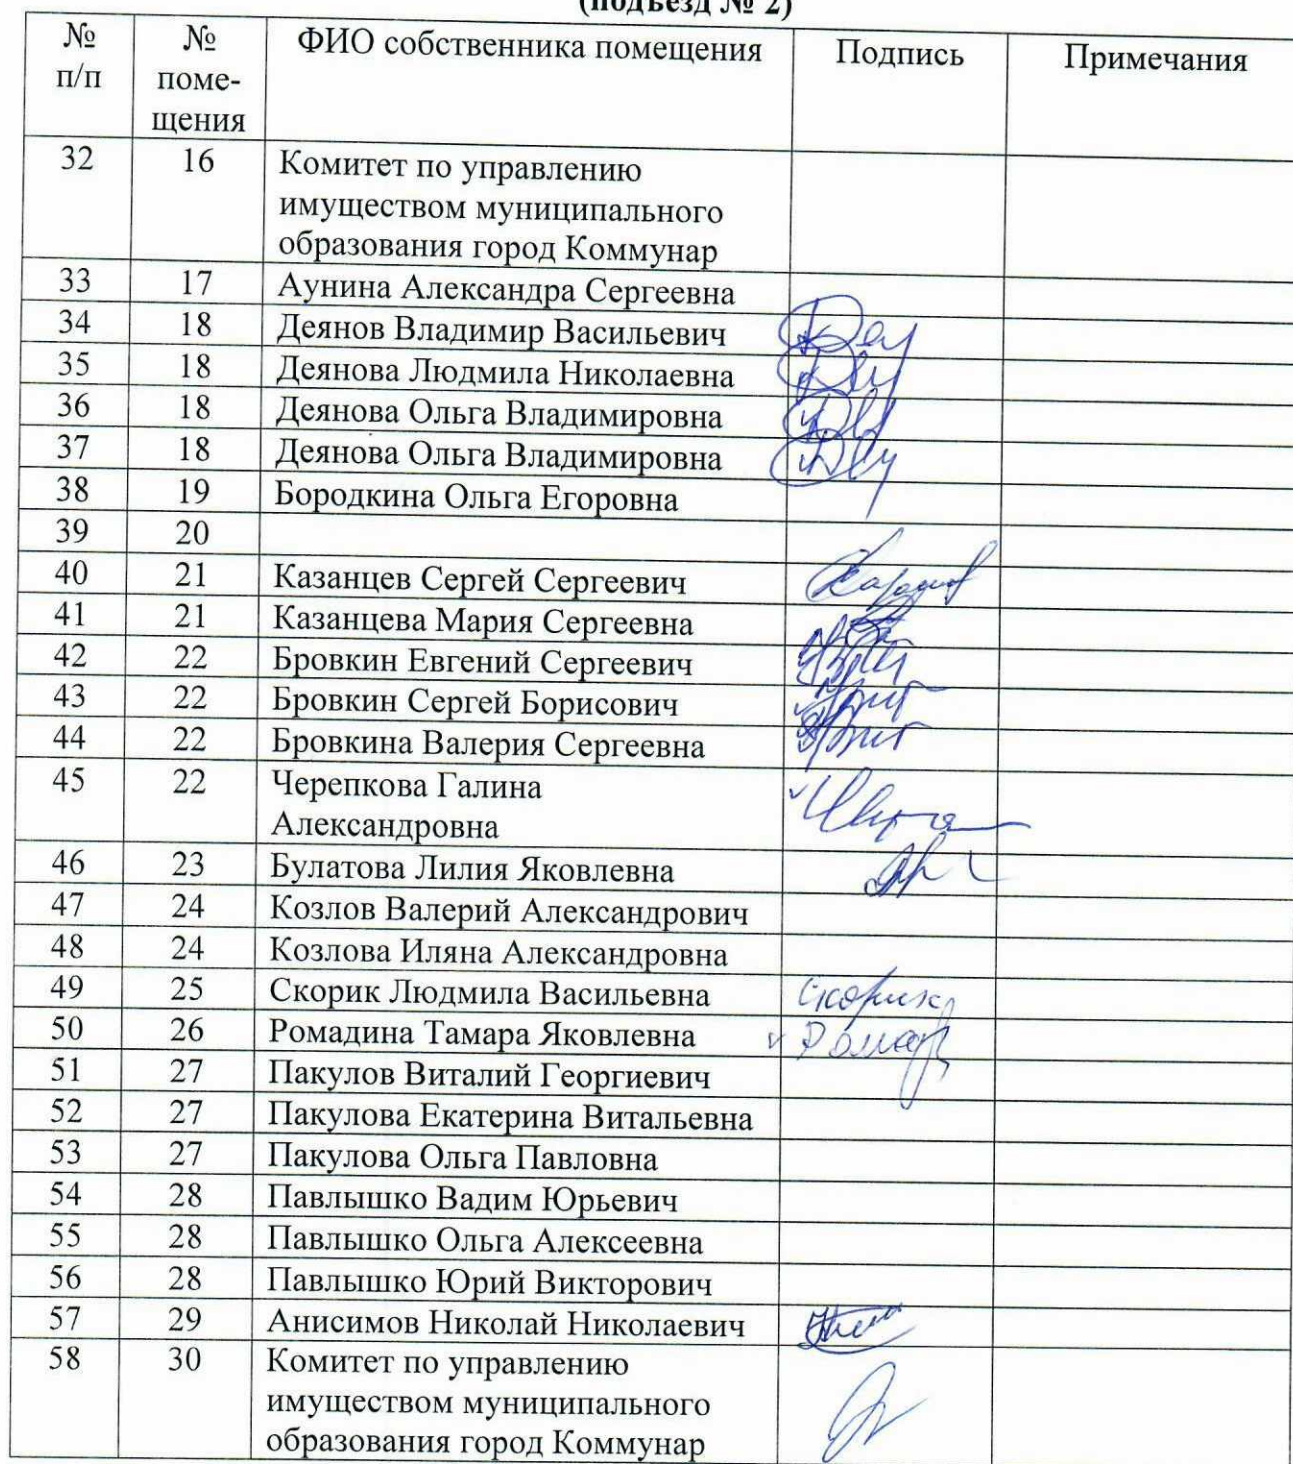 (подъезд № 2)
№ п/п № поме-щения ФИО собственника помещения Подпись Примечания
32 16 Комитет по управлению
имуществом муниципального
образования город Коммунар
33 17 Аунина Александра Сергеевна
34 18 Деянов Владимир Васильевич
35 18 Деянова Людмила Николаевна
36 18 Деянова Ольга Владимировна
37 18 Деянова Ольга Владимировна
38 19 Бородкина Ольга Егоровна
39 20
40 21 Казанцев Сергей Сергеевич
41 21 Казанцева Мария Сергеевна
42 22 Бровкин Евгений Сергеевич
43 22 Бровкин Сергей Борисович
44 22 Бровкина Валерия Сергеевна
45 22 Черепкова Галина
Александровна
46 23 Булатова Лилия Яковлевна
47 24 Козлов Валерий Александрович
48 24 Козлова Иляна Александровна
49 25 Скорик Людмила Васильевна Скорик
50 26 Ромадина Тамара Яковлевна
51 27 Пакулов Виталий Георгиевич
52 27 Пакулова Екатерина Витальевна
53 27 Пакулова Ольга Павловна
54 28 Павлышко Вадим Юрьевич
55 28 Павлышко Ольга Алексеевна
56 28 Павлышко Юрий Викторович
57 29 Анисимов Николай Николаевич
58 30 Комитет по управлению
имуществом муниципального
образования город Коммунар